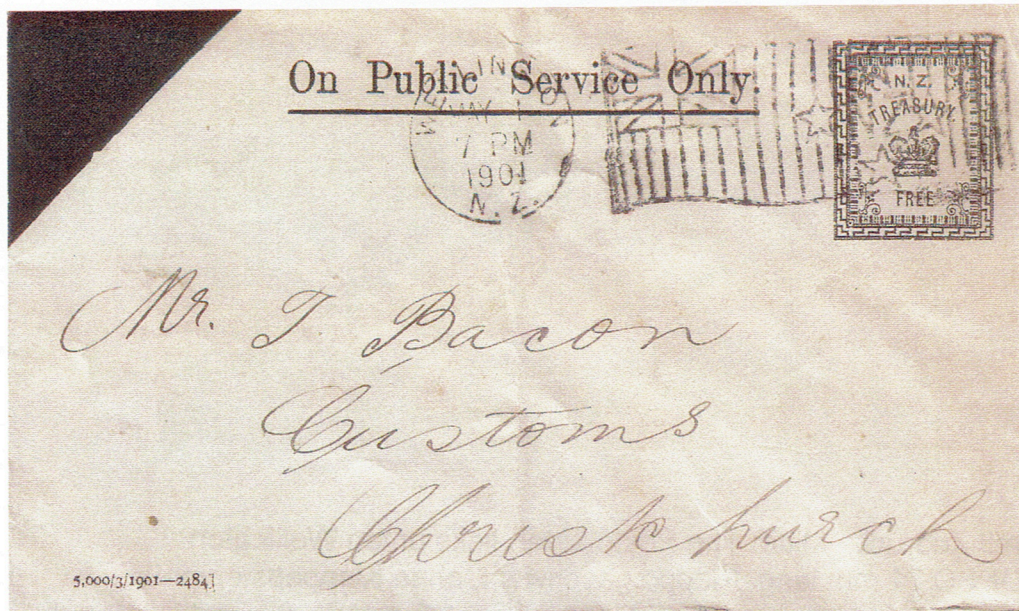 On Public Service Only.
WELLINGTON
MAY 1
7 PM
1901
N.Z.
N. Z.
TREASURY.
FREE
Mr. T Bacon
Customs
Christchurch
5,000/3/1901—2484]